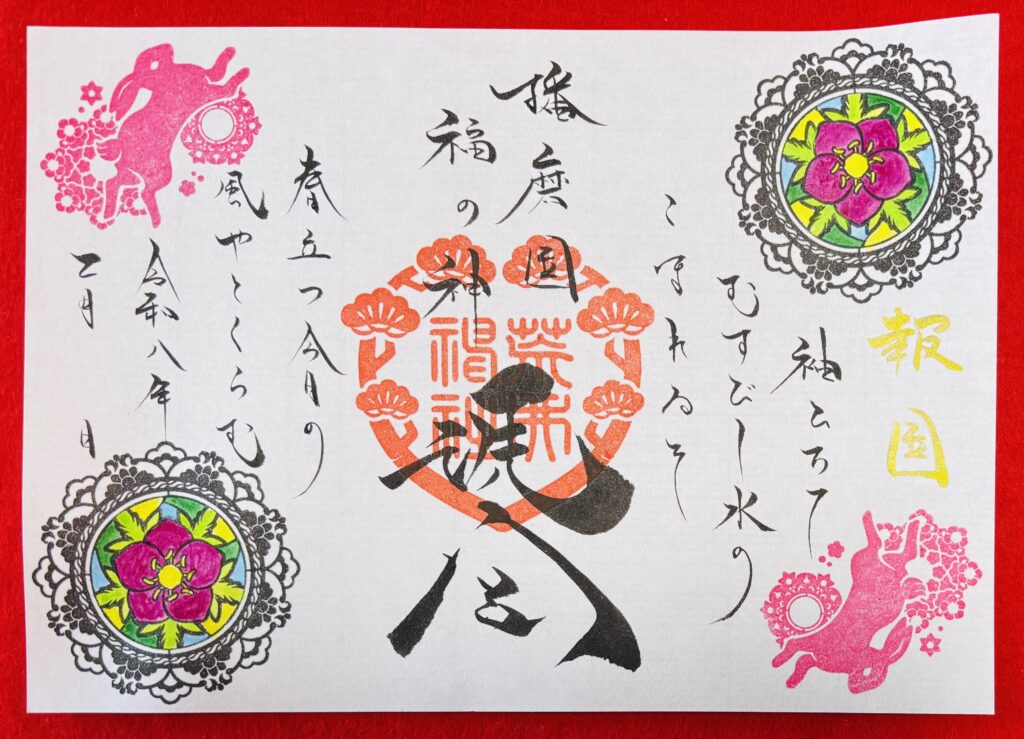 報国
袖ひちて
むすびし水の
こほれるを
播磨国
福の神
荒井
神社
春立つ今日の
風やとくらむ
令和八年
二月 日